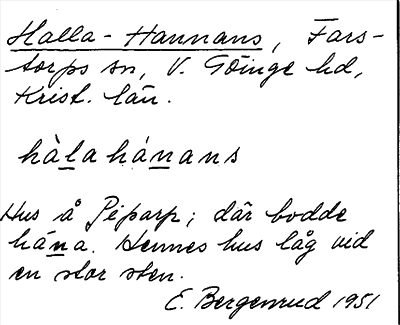 Halla-Hannans, Fars-
torps sn, V. Göinge hd,
Krist. län.
hàlahánans
Hus å Piparp; där bodde
hána. Hennes hus låg vid
en stor sten.
E. Bergenrud 1951